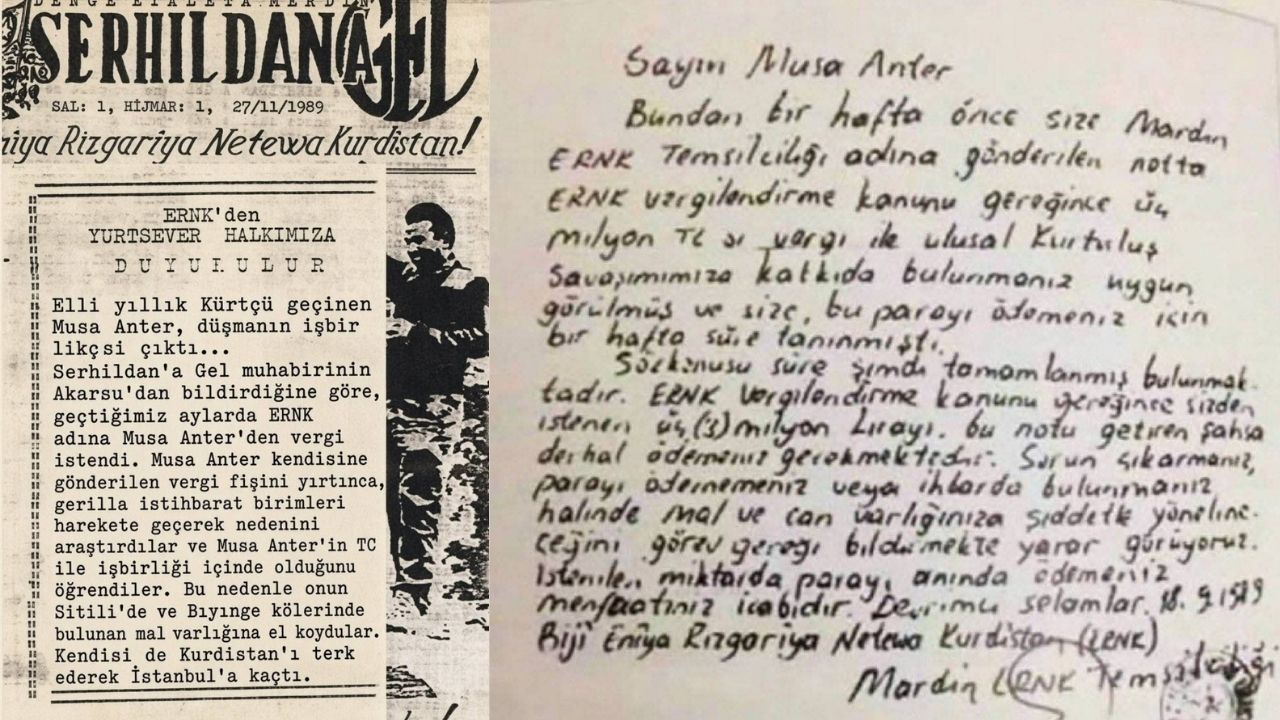 DENGE EYALETA MERDİN
SERHILDANA GEL
SAL: 1, HİJMAR: 1, 27/11/1989
Rizgariya Netewa Kurdistan!
ERNK'den
YURTSEVER HALKIMIZA
DUYURULUR
Elli yıllık Kürtçü geçinen
Musa Anter, düşmanın işbir
likçsi çıktı...
Serhildan'a Gel muhabirinin
Akarsu'dan bildirdiğine göre,
geçtiğimiz aylarda ERNK
adına Musa Anter'den vergi
istendi. Musa Anter kendisine
gönderilen vergi fişini yırtınca,
gerilla istihbarat birimleri
harekete geçerek nedenini
araştırdılar ve Musa Anter'in TC
ile işbirliği içinde olduğunu
öğrendiler. Bu nedenle onun
Sitili'de ve Bıyınge kölerinde
bulunan mal varlığına el koydular.
Kendisi de Kurdistan'ı terk
ederek İstanbul'a kaçtı.
Sayın Musa Anter
Bundan bir hafta önce size Mardin
ERNK Temsilciliği adına gönderilen notta
ERNK vergilendirme kanunu gereğince üç
milyon TC sı vergi ile ulusal Kurtuluş
Savaşımımıza katkıda bulunmanız uygun
görülmüş ve size, bu parayı ödemeniz için
bir hafta süre tanınmıştı.
Sözkonusu süre şimdi tamamlanmış bulunmak-
tadır. ERNK Vergilendirme kanunu gereğince sizden
istenen üç (3) milyon Lirayı. bu notu getiren şahsa
derhal ödemeniz gerekmektedir. Sorun çıkarmanız,
parayı ödememeniz veya ihbarda bulunmanız
halinde mal ve can varlığınıza şiddetle yöneline-
ceğini görev gereği bildirmekte yarar görüyoruz.
İstenilen miktarda parayı anında ödemeniz
menfaatınız icabıdır. Devrimci selamlar. 18.9.1989
Biji Eniya Rizgariya Netewa Kurdistan (ERNK)
Mardin ERNK Temsilciliği